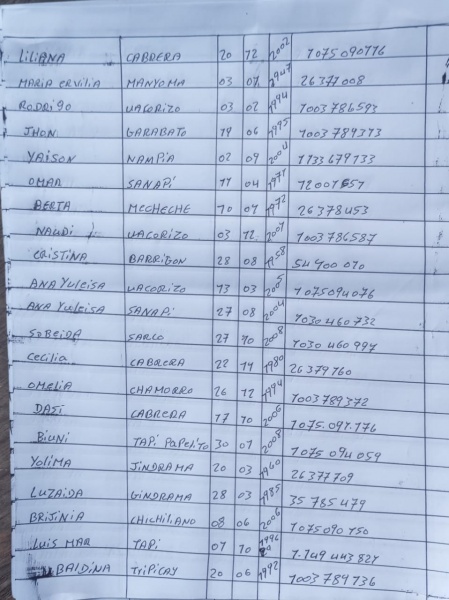 LiLiANA CABRERA 20 12 2002 1075090116
MARIA ERVILIA MANYOMA 03 07 1947 26377008
RODRigo UACORIZO 03 02 1994 1003786593
JHON GARABATO 19 06 1995 1003789373
YAISON NAMPIA 02 09 2004 1133679133
OMAR SANAPÍ 11 04 1971
BERTA MECHECHE 10 07 1972 26378453
NAUDI UACORIZO 03 12 2001 1003786587
CRISTINA BARRIGON 28 08 1958 54400010
ANA YuLeisA UACORIZO 13 03 2005 1075094076
ANA YuLeisA SANAPI 27 08 2004 1030460732
SOBEIDA SARCO 27 10 2008 1030460997
Cecilia CABRERA 22 11 1980 26379160
OMELIA CHAMORRO 26 12 1994 1003789372
DASI CABRERA 17 10 2006 1075.091.176
BIUNI TAPI PAPELITO 30 01 2008 1075094059
YOLIMA JINDRAMA 20 03 1960 26377709
LUZAIDA GINDRAMA 28 03 1985 35785479
BRIJINIA CHICHILIANO 08 06 2006 1075090150
LUIS MAR TAPI 07 10 1996 1.149443827
BALDINA TRIPICAY 20 06 1992 1003789736